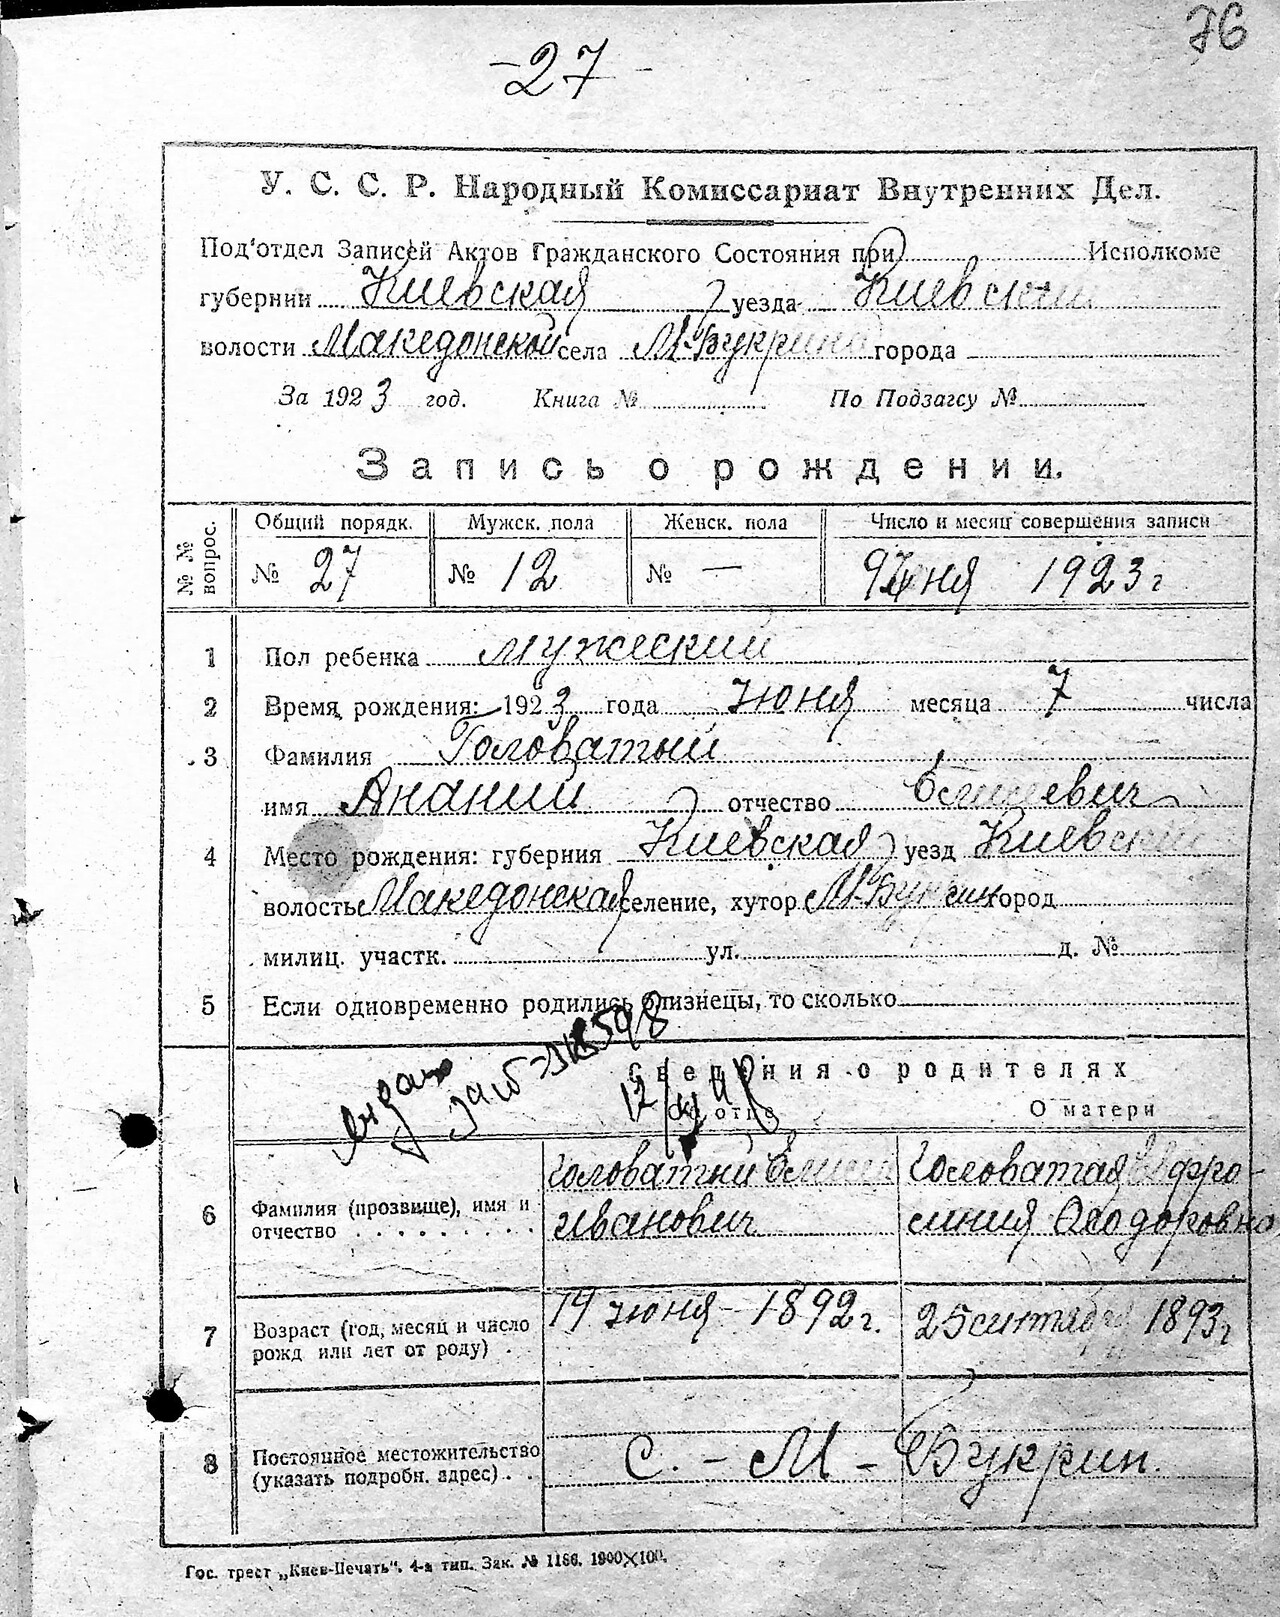 76
-27-
У. С. С. Р. Народный Комиссариат Внутренних Дел.
Под'отдел Записей Актов Гражданского Состояния при Исполкоме
губернии Киевская уезда Киевский
волости Македонской села М-Букрина города
За 1923 год. Книга № По Подзагсу №
Запись о рождении.
№ № вопрос. Общий порядк. Мужск. пола Женск. пола Число и месяц совершения записи
№ 27 № 12 № — 9 Июня 1923 г
1 Пол ребенка мужеский
2 Время рождения: 1923 года Июня месяца 7 числа
3 Фамилия Головатый
имя Ананий отчество
4 Место рождения: губерния Киевская уезд Киевский
волость Македонская селение, хутор М-Букрин город
милиц. участк. ул. д. №
5 Если одновременно родились близнецы, то сколько
Сведения о родителях
Об отце О матери
6 Фамилия (прозвище), имя и отчество
Головатый Головатая Евфро-
Иванович синия Феодоровна
7 Возраст (год, месяц и число рожд или лет от роду)
19 июня 1892 г. 25 сентября 1893 г
8 Постоянное местожительство (указать подробн. адрес)
С. - М - Букрин.
Гос. трест „Киев-Печать". 4-а тип. Зак. № 1186. 1900×100.